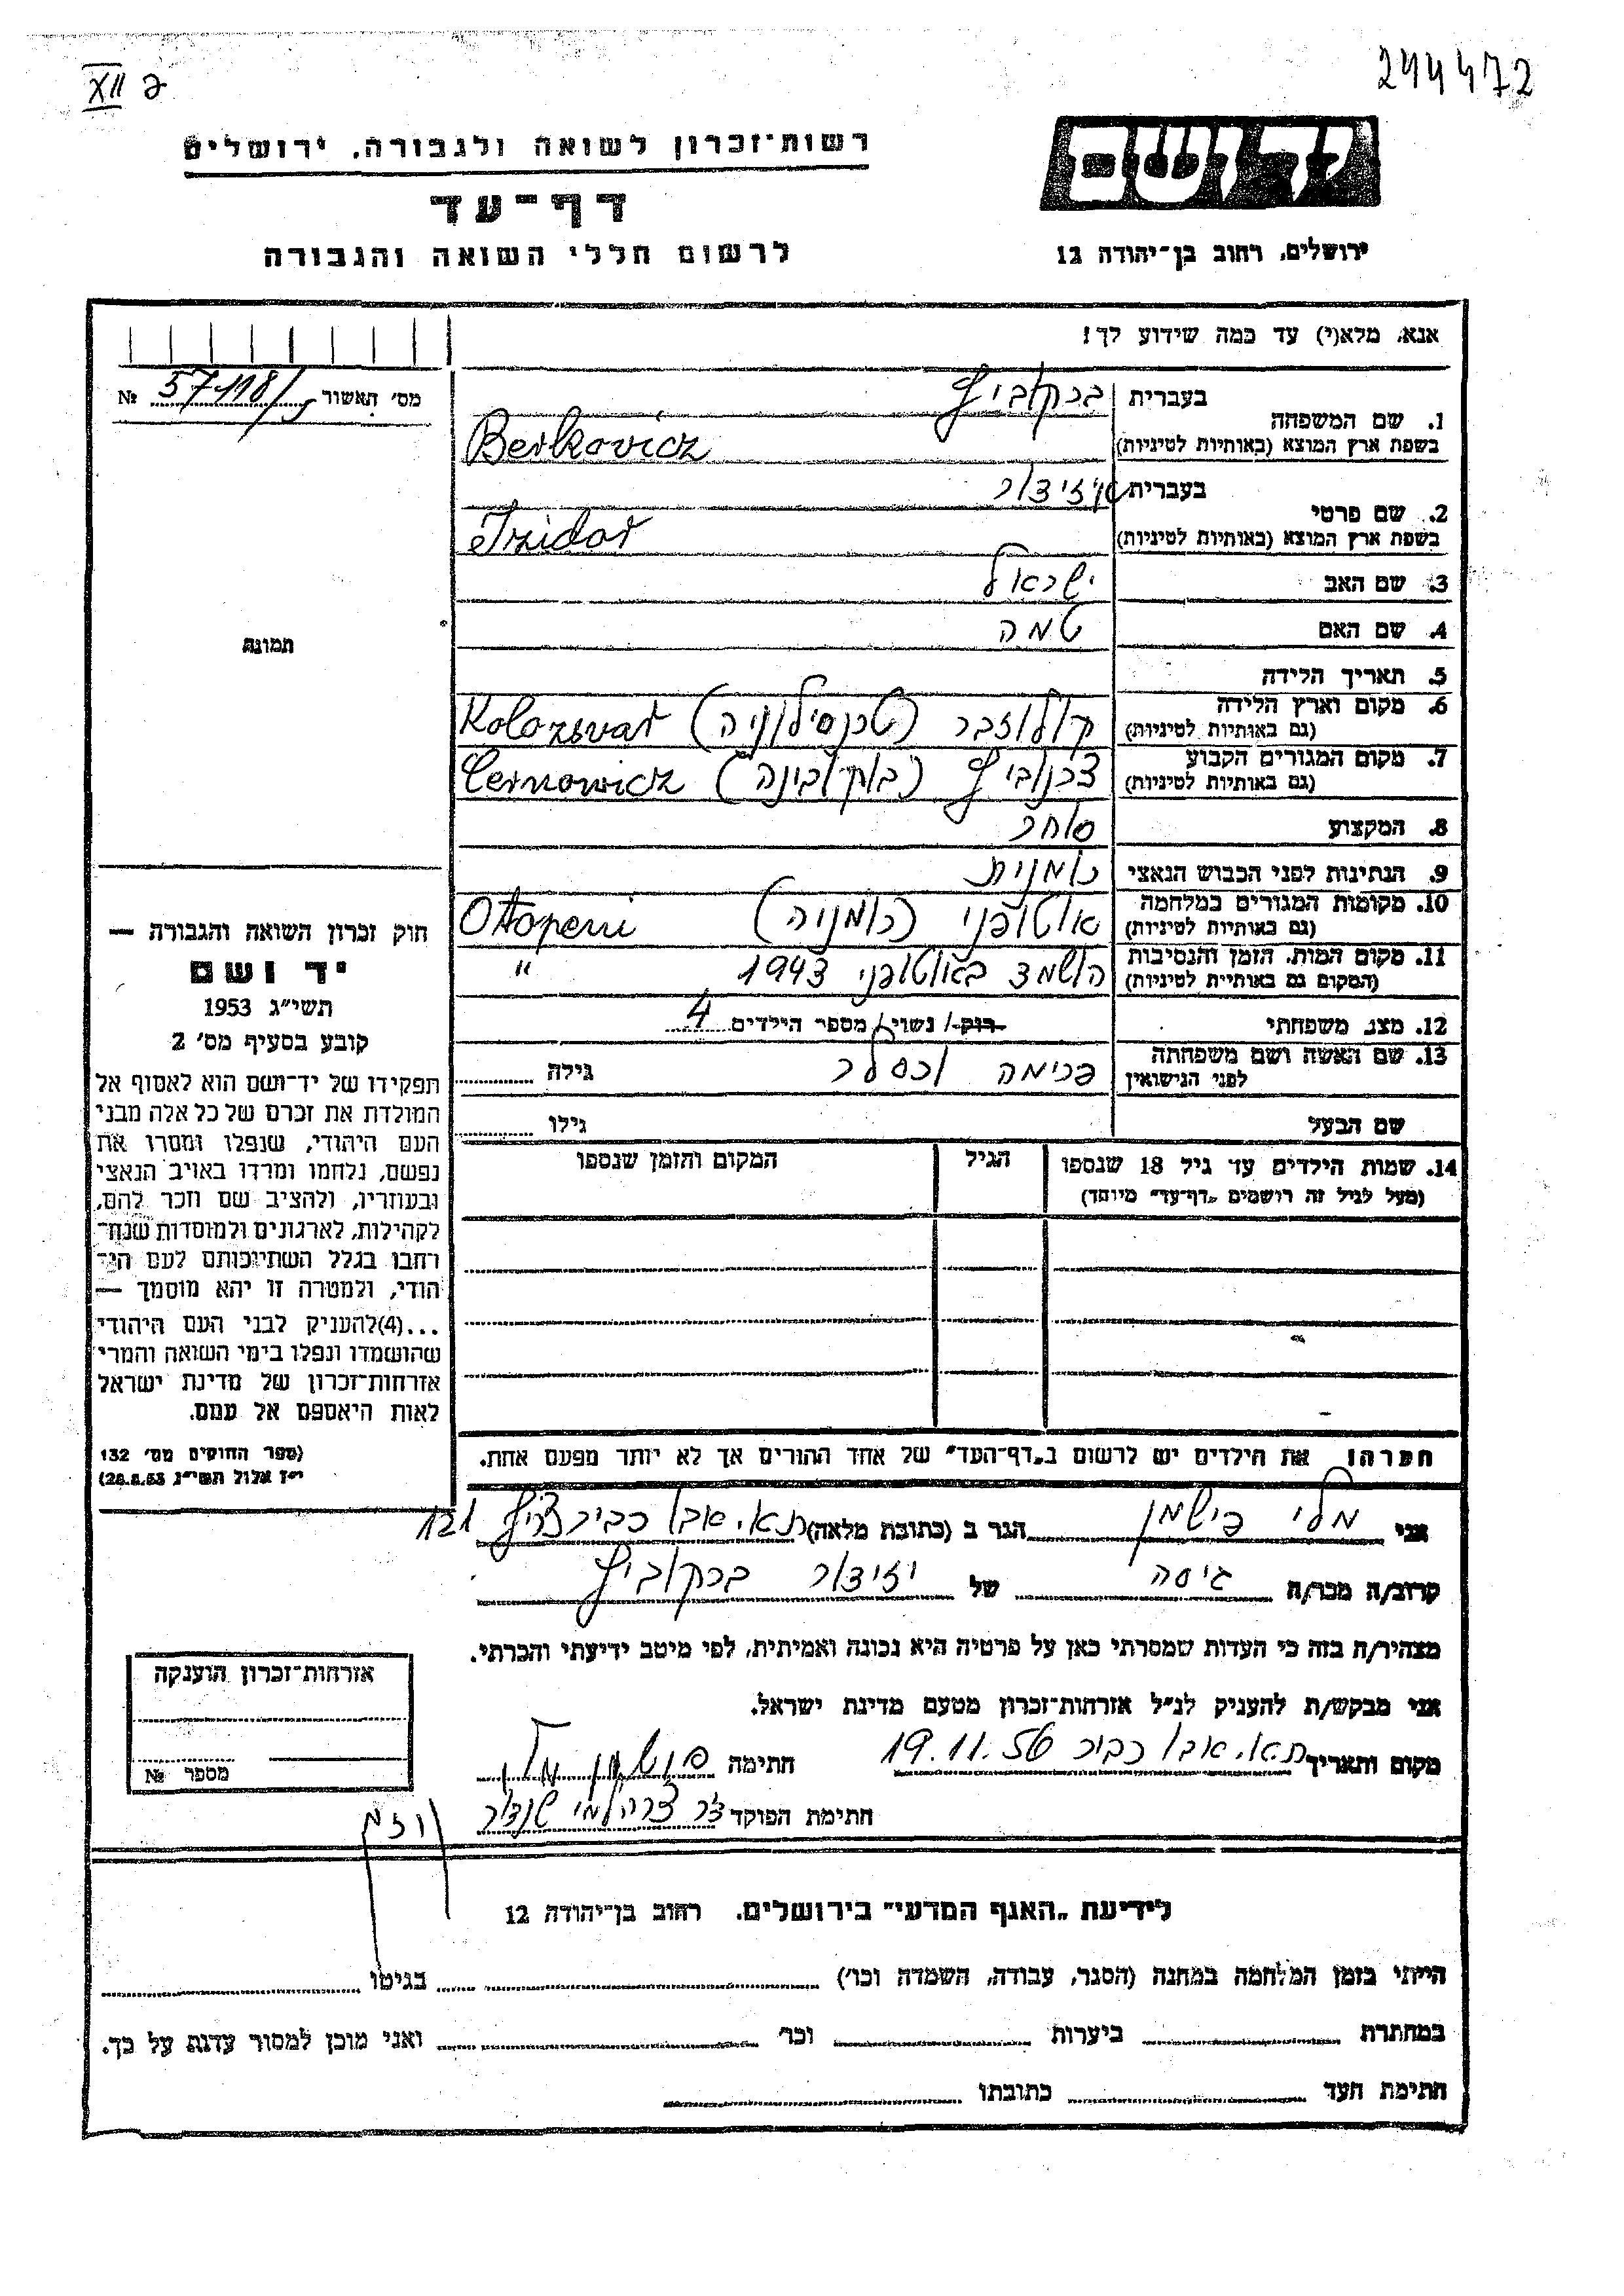 XII ב
244472
יד ושם
רשות־זכרון לשואה ולגבורה, ירושלים
דף־עד
לרשום חללי השואה והגבורה
ירושלים, רחוב בן־יהודה 12
אנא, מלא(י) עד כמה שידוע לך!
מס׳ תאשור 57118/ №
1. שם המשפחה
בעברית ברקוביץ
בשפת ארץ המוצא (באותיות לטיניות) Berkovicz
2. שם פרטי
בעברית איזידור
בשפת ארץ המוצא (באותיות לטיניות) Izidor
3. שם האב ישראל
4. שם האם טמה
5. תאריך הלידה
6. מקום וארץ הלידה קולוזבר (טרנסילוניה) Kolozsvar
(גם באותיות לטיניות)
7. מקום המגורים הקבוע צרנוביץ (בוקובינה) Cernowicz
(גם באותיות לטיניות)
8. המקצוע סוחר
9. הנתינות לפני הכבוש הנאצי רומנית
10. מקומות המגורים במלחמה אוטופני (רומניה) Ottopeni
(גם באותיות לטיניות)
11. מקום המות, הזמן והנסיבות הושמד באוטופני 1943 "
(המקום גם באותיות לטיניות)
12. מצב משפחתי רווק/ נשוי/ מספר הילדים 4
13. שם האשה ושם משפחתה פרימה וכסלר גילה
לפני הנישואין
שם הבעל גילו
14. שמות הילדים עד גיל 18 שנספו הגיל המקום והזמן שנספו
(מעל לגיל זה רושמים „דף־עד״ מיוחד)
תמונה
חוק זכרון השואה והגבורה —
יד ושם
תשי״ג 1953
קובע בסעיף מס׳ 2
תפקידו של יד־ושם הוא לאסוף אל
המולדת את זכרם של כל אלה מבני
העם היהודי, שנפלו ומסרו את
נפשם, נלחמו ומרדו באויב הנאצי
ובעוזריו, ולהציב שם וזכר להם,
לקהילות, לארגונים ולמוסדות שנח־
רחבו בגלל השתייכותם לעם הי־
הודי, ולמטרה זו יהא מוסמך —
...(4)להעניק לבני העם היהודי
שהושמדו ונפלו בימי השואה והמרי
אזרחות־זכרון של מדינת ישראל
לאות היאספם אל עמם.
(ספר החוקים מס׳ 132
י״ז אלול תשי״ג, 28.8.53)
הערה! את הילדים יש לרשום ב„דף־העד״ של אחד ההורים אך לא יותר מפעם אחת.
אני מלי פישמן הגר ב (כתובת מלאה) ת.א. אבו כביר צריף 121
קרוב/ה מכר/ה גיסה של יזידור ברקוביץ
מצהיר/ה בזה כי העדות שמסרתי כאן על פרטיה היא נכונה ואמיתית, לפי מיטב ידיעתי והכרתי.
אני מבקש/ת להעניק לנ״ל אזרחות־זכרון מטעם מדינת ישראל.
מקום ותאריך ת.א. אבו כביר 19.11.56 חתימה פישמן מלי
חתימת הפוקד
אזרחות־זכרון הוענקה
מספר №
לידיעת „האגף המדעי״ בירושלים, רחוב בן־יהודה 12
הייתי בזמן המלחמה במחנה (הסגר, עבודה, השמדה וכו׳) בגיטו
במחתרת ביערות וכו׳ ואני מוכן למסור עדות על כך.
חתימת העד כתובתו